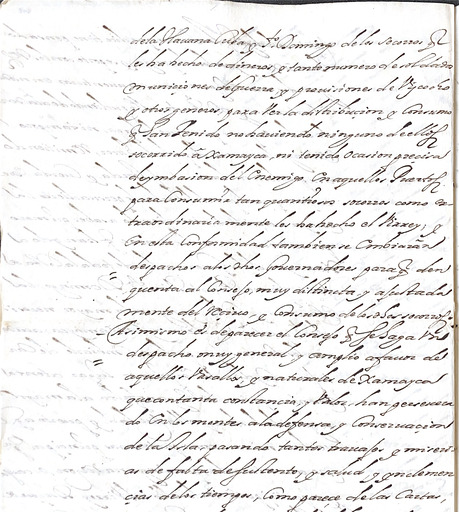 de la Havana Cuba, y Sto Domingo de los socorros q
les ha hecho de dineros, y tanto numero de soldados
municiones de guerra, y provisiones de Vizcocho
y otros generos, para ver la distribucion, y Consumo
q han tenido no haviendo ninguno de ellos
socorrido â Xamayca, ni tenido ocasion precisa
de ymbasion del Enemigo, en aquellos Puertos
para Consumir tan quantiosos socorros como ex-
traordinaria mente les ha hecho el Virrey, y
En esta Conformidad tambien se embiarân
despachos a los dhos Governadores para q den
quenta al Consejo, muy distinta, y ajustada
mente del Recivo, y Consumo de los dhos socorros
Asimismo es de parecer el Consejo q se haga
despacho muy general y amplio a favor de
aquellos Vasallos, y naturales de Xamayca
que con tanta constancia, y Valor, han persevera-
do en los montes a la defensa, y Conservacion
de la Isla, pasando tantos travajos, y miseri-
as de falta de sustento, y salud, y ynclemen-
cias de los tiempos, Como parece de las Cartas,